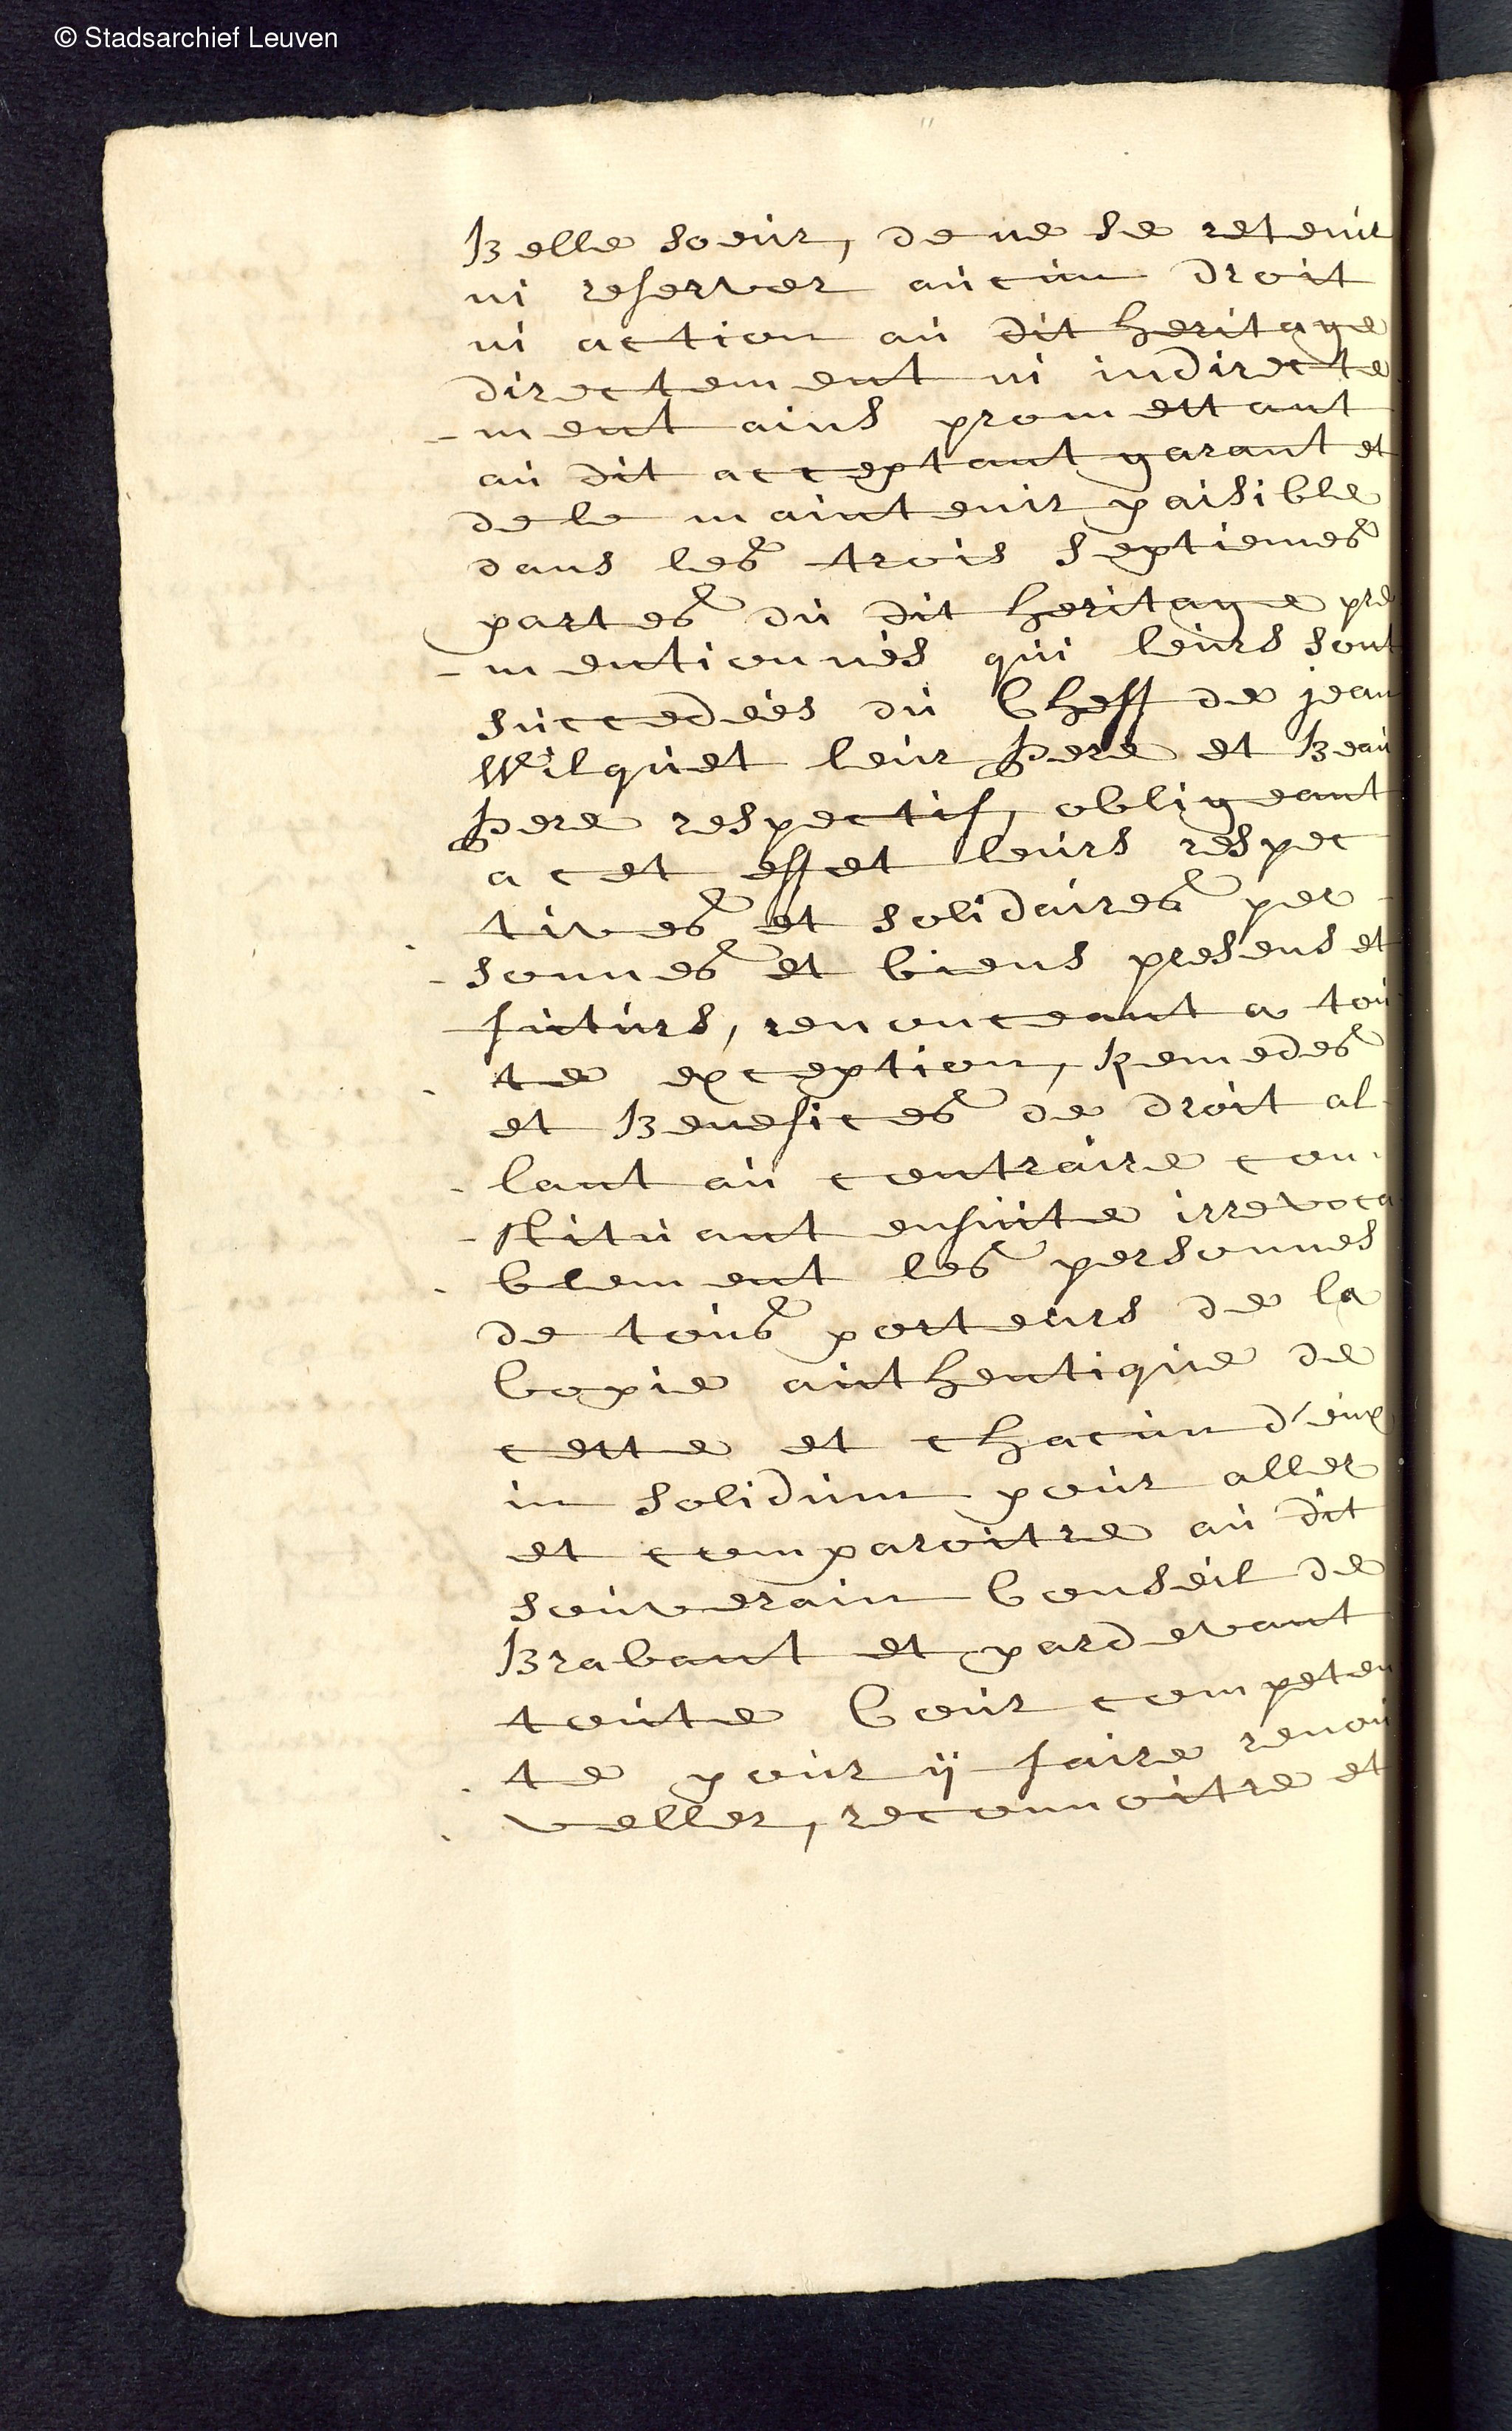 © Stadsarchief Leuven
Belle soeur, de ne se retenir
ni reserver aucun droit
ni action au dit heritage
directement ni indirecte
-ment ains promettant
au dit acceptant garant et
de le maintenir paisible
dans les trois septiemes
partes du dit heritage pre
-mentionnés qui leurs sont
succedéés du Cheff de jean
Wilquet leur Pere et Beau
Pere respectif, obligeant
a cet effet leurs respec
tives et solidaires per-
-sonnes et biens presens et
futurs, renonceant a tou
te exception, Remedes
et Benefices de droit al-
lant au contraire con-
-stituant ensuite irrevoca
blement les personnes
de tous porteurs de la
Copie authentique de
cette et chacun d'eux
in solidum pour aller
et comparoitre au dit
souverain Conseil de
Brabant et pardevant
toute Cour competen
te pour ÿ faire renou
veller, reconnoitre et